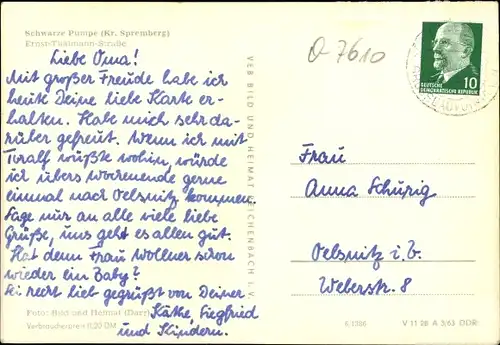 Schwarze Pumpe (Kr. Spremberg)
Ernst-Thälmann-Straße
Liebe Oma!
Mit großer Freude habe ich
heute Deine liebe Karte er-
halten. Habe mich sehr da-
rüber gefreut. Wenn ich mit
Toralf wüßte wohin, würde
ich übers Wochenende gerne
einmal nach Oelsnitz kommen.
Sage nur an alle viele liebe
Grüße, uns geht es allen gut.
Hat denn Frau Wollner schon
wieder ein Baby?
Sei recht lieb gegrüßt von Deiner
Käthe, Siegfried
und Kindern.
Foto: Bild und Heimat (Darr)
Verbraucherpreis 0,20 DM
VEB BILD UND HEIMAT REICHENBACH I. V.
O 7610
DEUTSCHE
DEMOKRATISCHE REPUBLIK
10
Frau
Anna Schupig
Oelsnitz i. V.
Weberstr. 8
V 11 28 A 5/63 DDR